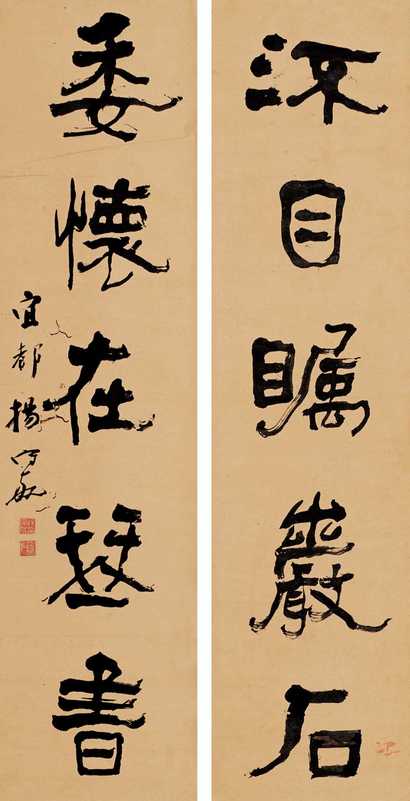 流目矚巖石
委懷在琴書
宜都楊守敬